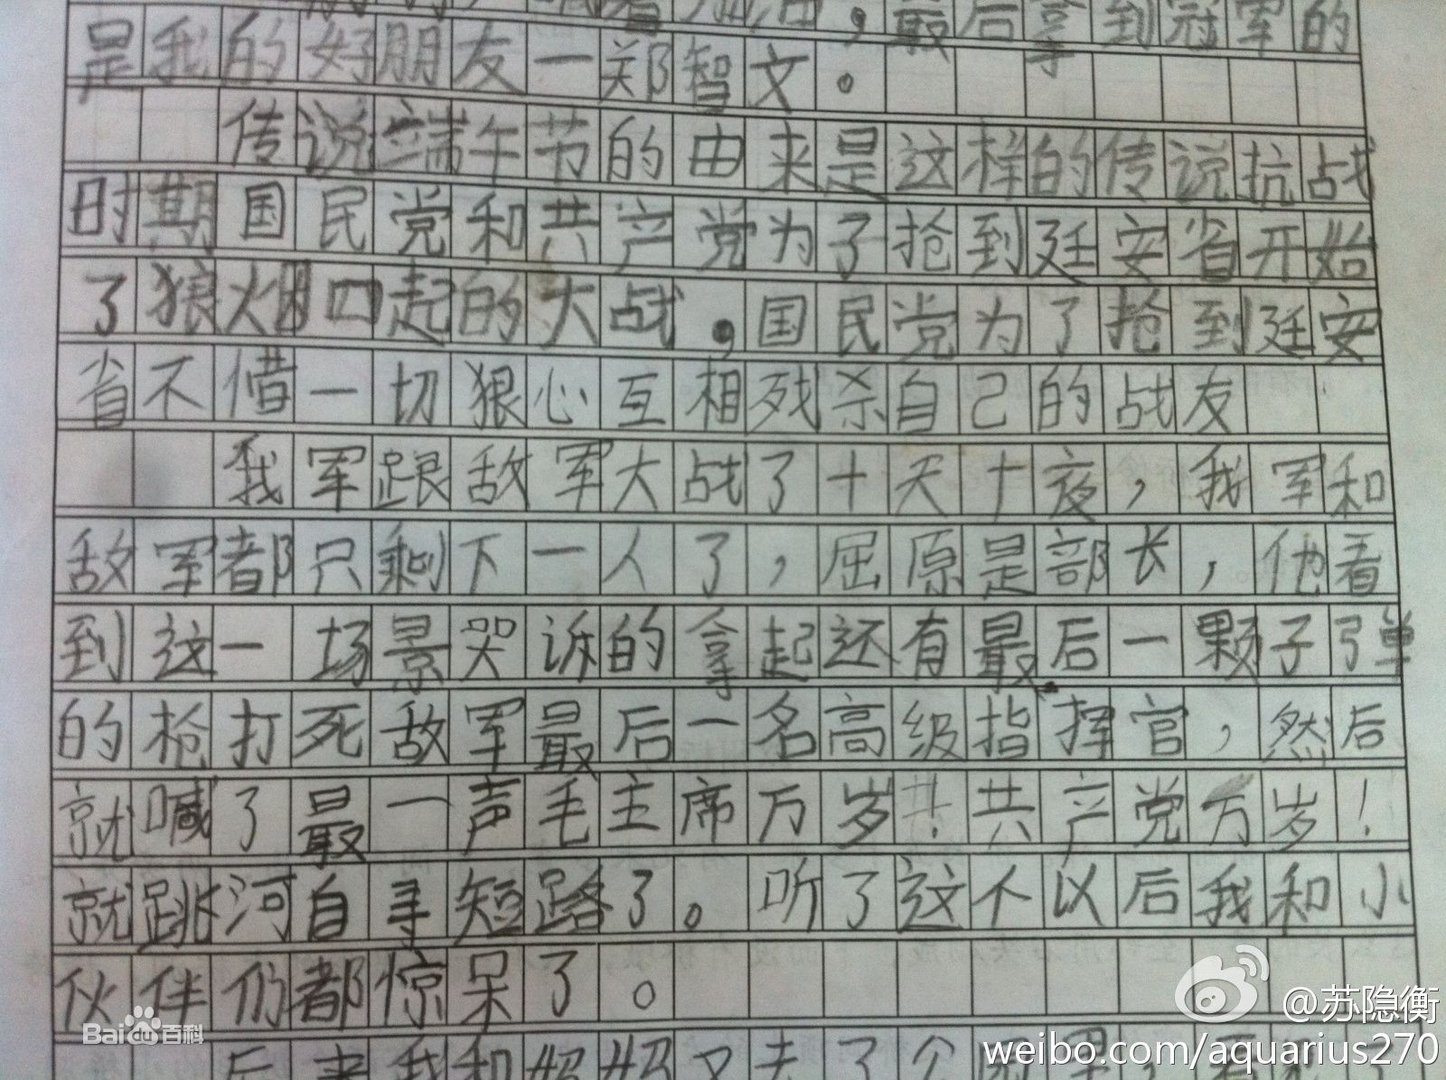 最后拿到冠军的
是我的好朋友一郑智文。
传说端午节的由来是这样的传说抗战
时期国民党和共产党为了抢到廷安省开始
了狼烟四起的大战。国民党为了抢到廷安
省不借一切狠心互相残杀自己的战友
我军跟敌军大战了十天十夜，我军和
敌军都只剩下一人了，屈原是部长，他看
到这一场景哭诉的拿起还有最后一颗子弹
的枪打死敌军最后一名高级指挥官，然后
就喊了最一声毛主席万岁！共产党万岁！
就跳河自寻短路了。听了这个以后我和小
伙伴们都惊呆了。
后来我和
又去了
Baidu百科
@苏隐衡
weibo.com/aquarius270